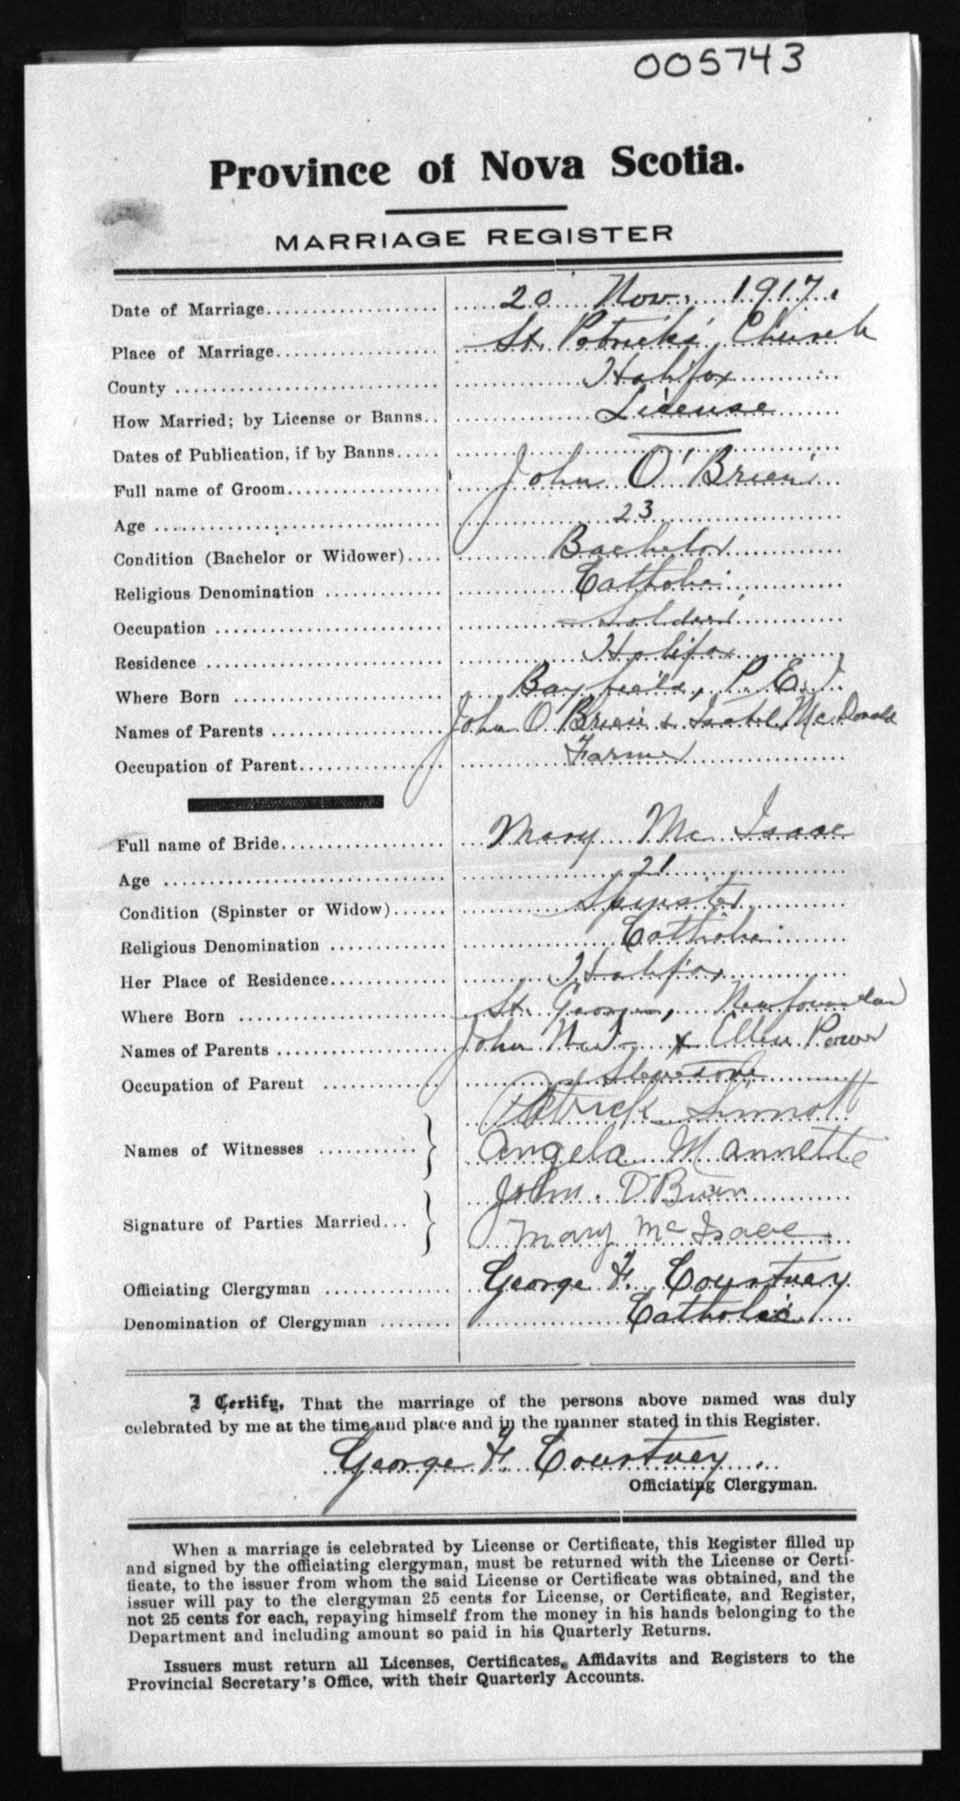 005743
Province of Nova Scotia.
MARRIAGE REGISTER
Date of Marriage 20 Nov. 1917.
Place of Marriage St. Patrick's Church
County Halifax
How Married; by License or Banns License
Dates of Publication, if by Banns
Full name of Groom John O'Brien
Age 23
Condition (Bachelor or Widower) Bachelor
Religious Denomination Catholic
Occupation Soldier
Residence Halifax
Where Born Bayfield, P.E.I.
Names of Parents John O'Brien & Isabel McDonald
Occupation of Parent Farmer
Full name of Bride Mary Mc Isaac
Age 21
Condition (Spinster or Widow) Spinster
Religious Denomination Catholic
Her Place of Residence Halifax
Where Born St. Georges, Newfoundland
Names of Parents John McI- & Ellen Power
Occupation of Parent
Names of Witnesses Patrick Sinnott
Angela Mannette
Signature of Parties Married John O'Brien
Mary McIsaac
Officiating Clergyman George F. Courtney
Denomination of Clergyman Catholic
I Certify, That the marriage of the persons above named was duly
celebrated by me at the time and place and in the manner stated in this Register.
George F. Courtney
Officiating Clergyman.
When a marriage is celebrated by License or Certificate, this Register filled up
and signed by the officiating clergyman, must be returned with the License or Certi-
ficate, to the issuer from whom the said License or Certificate was obtained, and the
issuer will pay to the clergyman 25 cents for License, or Certificate, and Register,
not 25 cents for each, repaying himself from the money in his hands belonging to the
Department and including amount so paid in his Quarterly Returns.
Issuers must return all Licenses, Certificates, Affidavits and Registers to the
Provincial Secretary's Office, with their Quarterly Accounts.